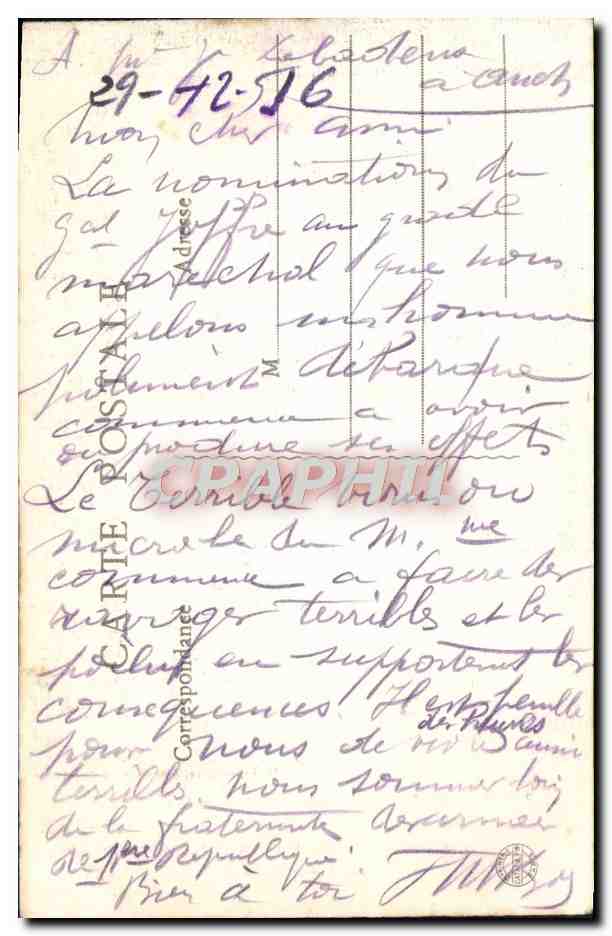 à Auch
29-12-516
Mon cher ami
La nomination du
gal Joffre au grade
maréchal que nous
appelons
poliment débarque
commence a avoir
ou produire ses effets
Le Terrible virus ou
microbe du M. me
commence a faire des
ravages terribles et les
poilus en supportent les
consequences. Il est penible
pour nous de vivre des heures aussi
terribles. nous sommes loin
de la fraternité des armées
de 1ère République
Bien à toi
CARTE POSTALE
Correspondance
M
Adresse
CPAPHIL